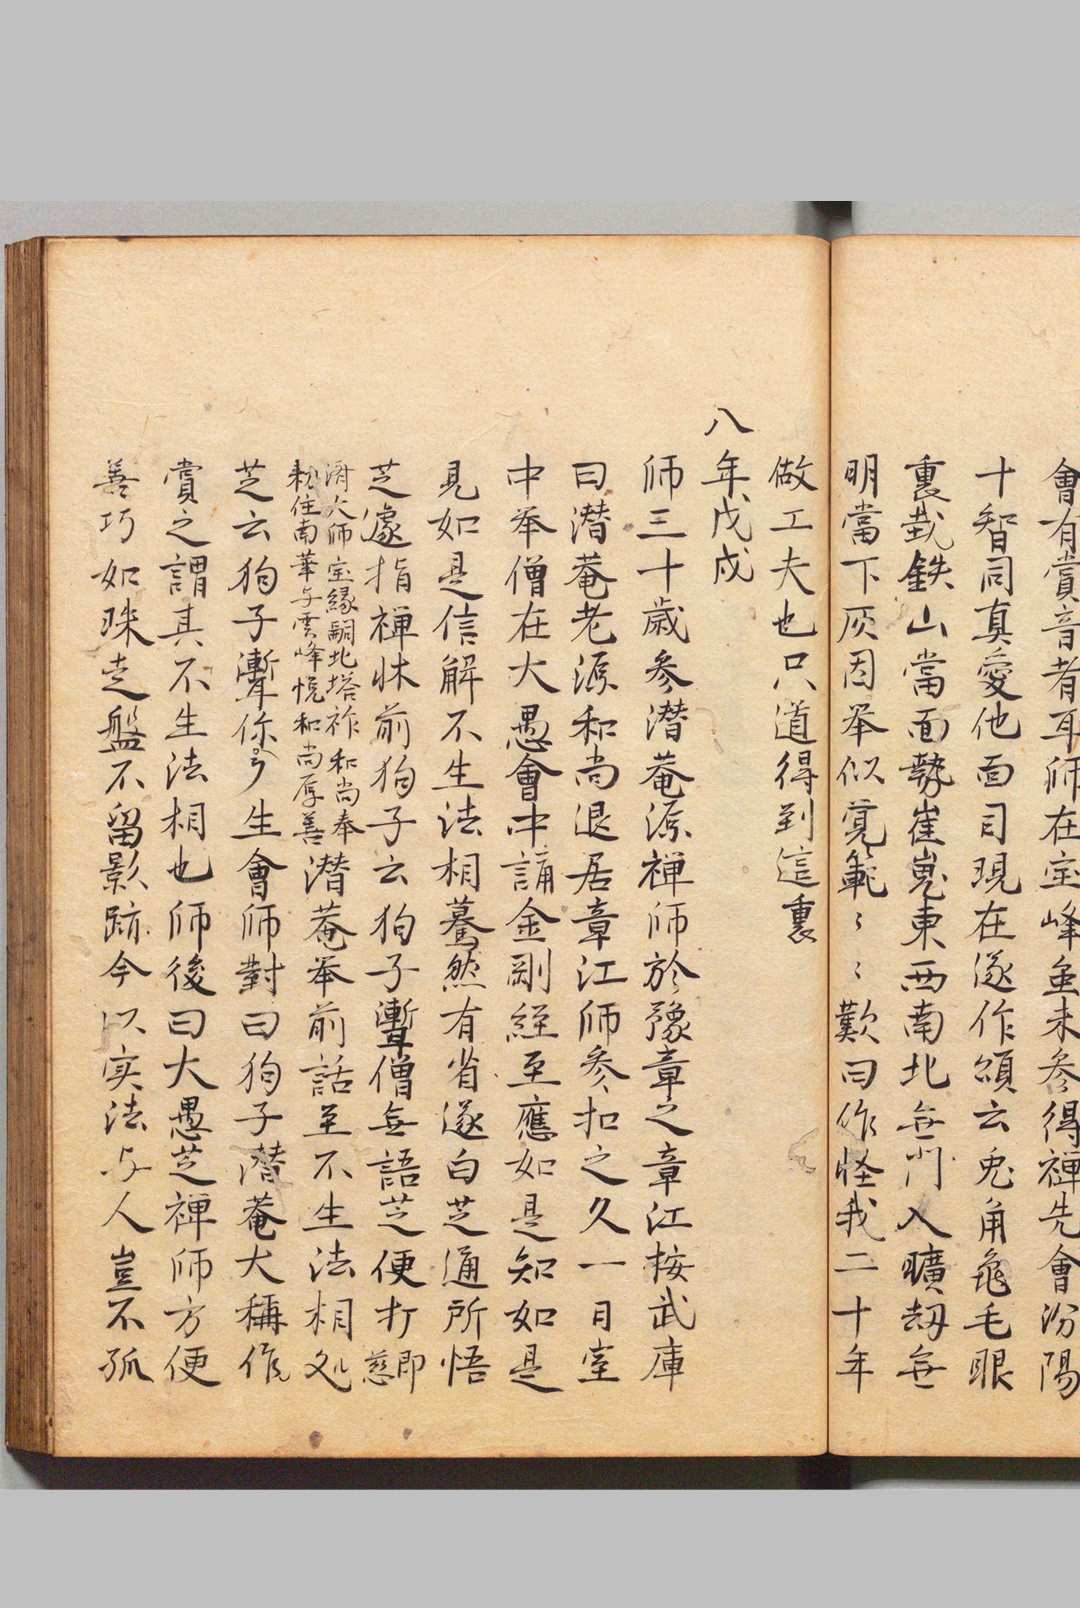 會有賞音者耳師在宝峰虽未参得禅先會汾陽
十智同真愛他面目現在遂作頌云兎角龜毛眼
裏栽鉄山當面勢崔嵬東西南北無門入曠劫無
明當下灰因举似寛範〻〻歎曰作怪我二十年
做工夫也只道得到這裏
八年戊戌
師三十歳參潜菴源禅師於豫章之章江按武庫
曰潜菴老源和尚退居章江師参扣之久一日室
中举僧在大愚會中誦金剛經至應如是知如是
見如是信解不生法相驀然有省遂白芝通所悟
芝遽指禅牀前狗子云狗子聻僧無語芝便打即慈
済大师宝縁嗣北塔祚和尚奉
勅住南華与雲峰悦和尚厚善潜菴举前話至不生法相処
芝云狗子聻你作广生會師對曰狗子潜菴大稱
賞之謂其不生法相也師後曰大愚芝禅師方便
善巧如珠走盤不留影跡今以实法与人豈不孤